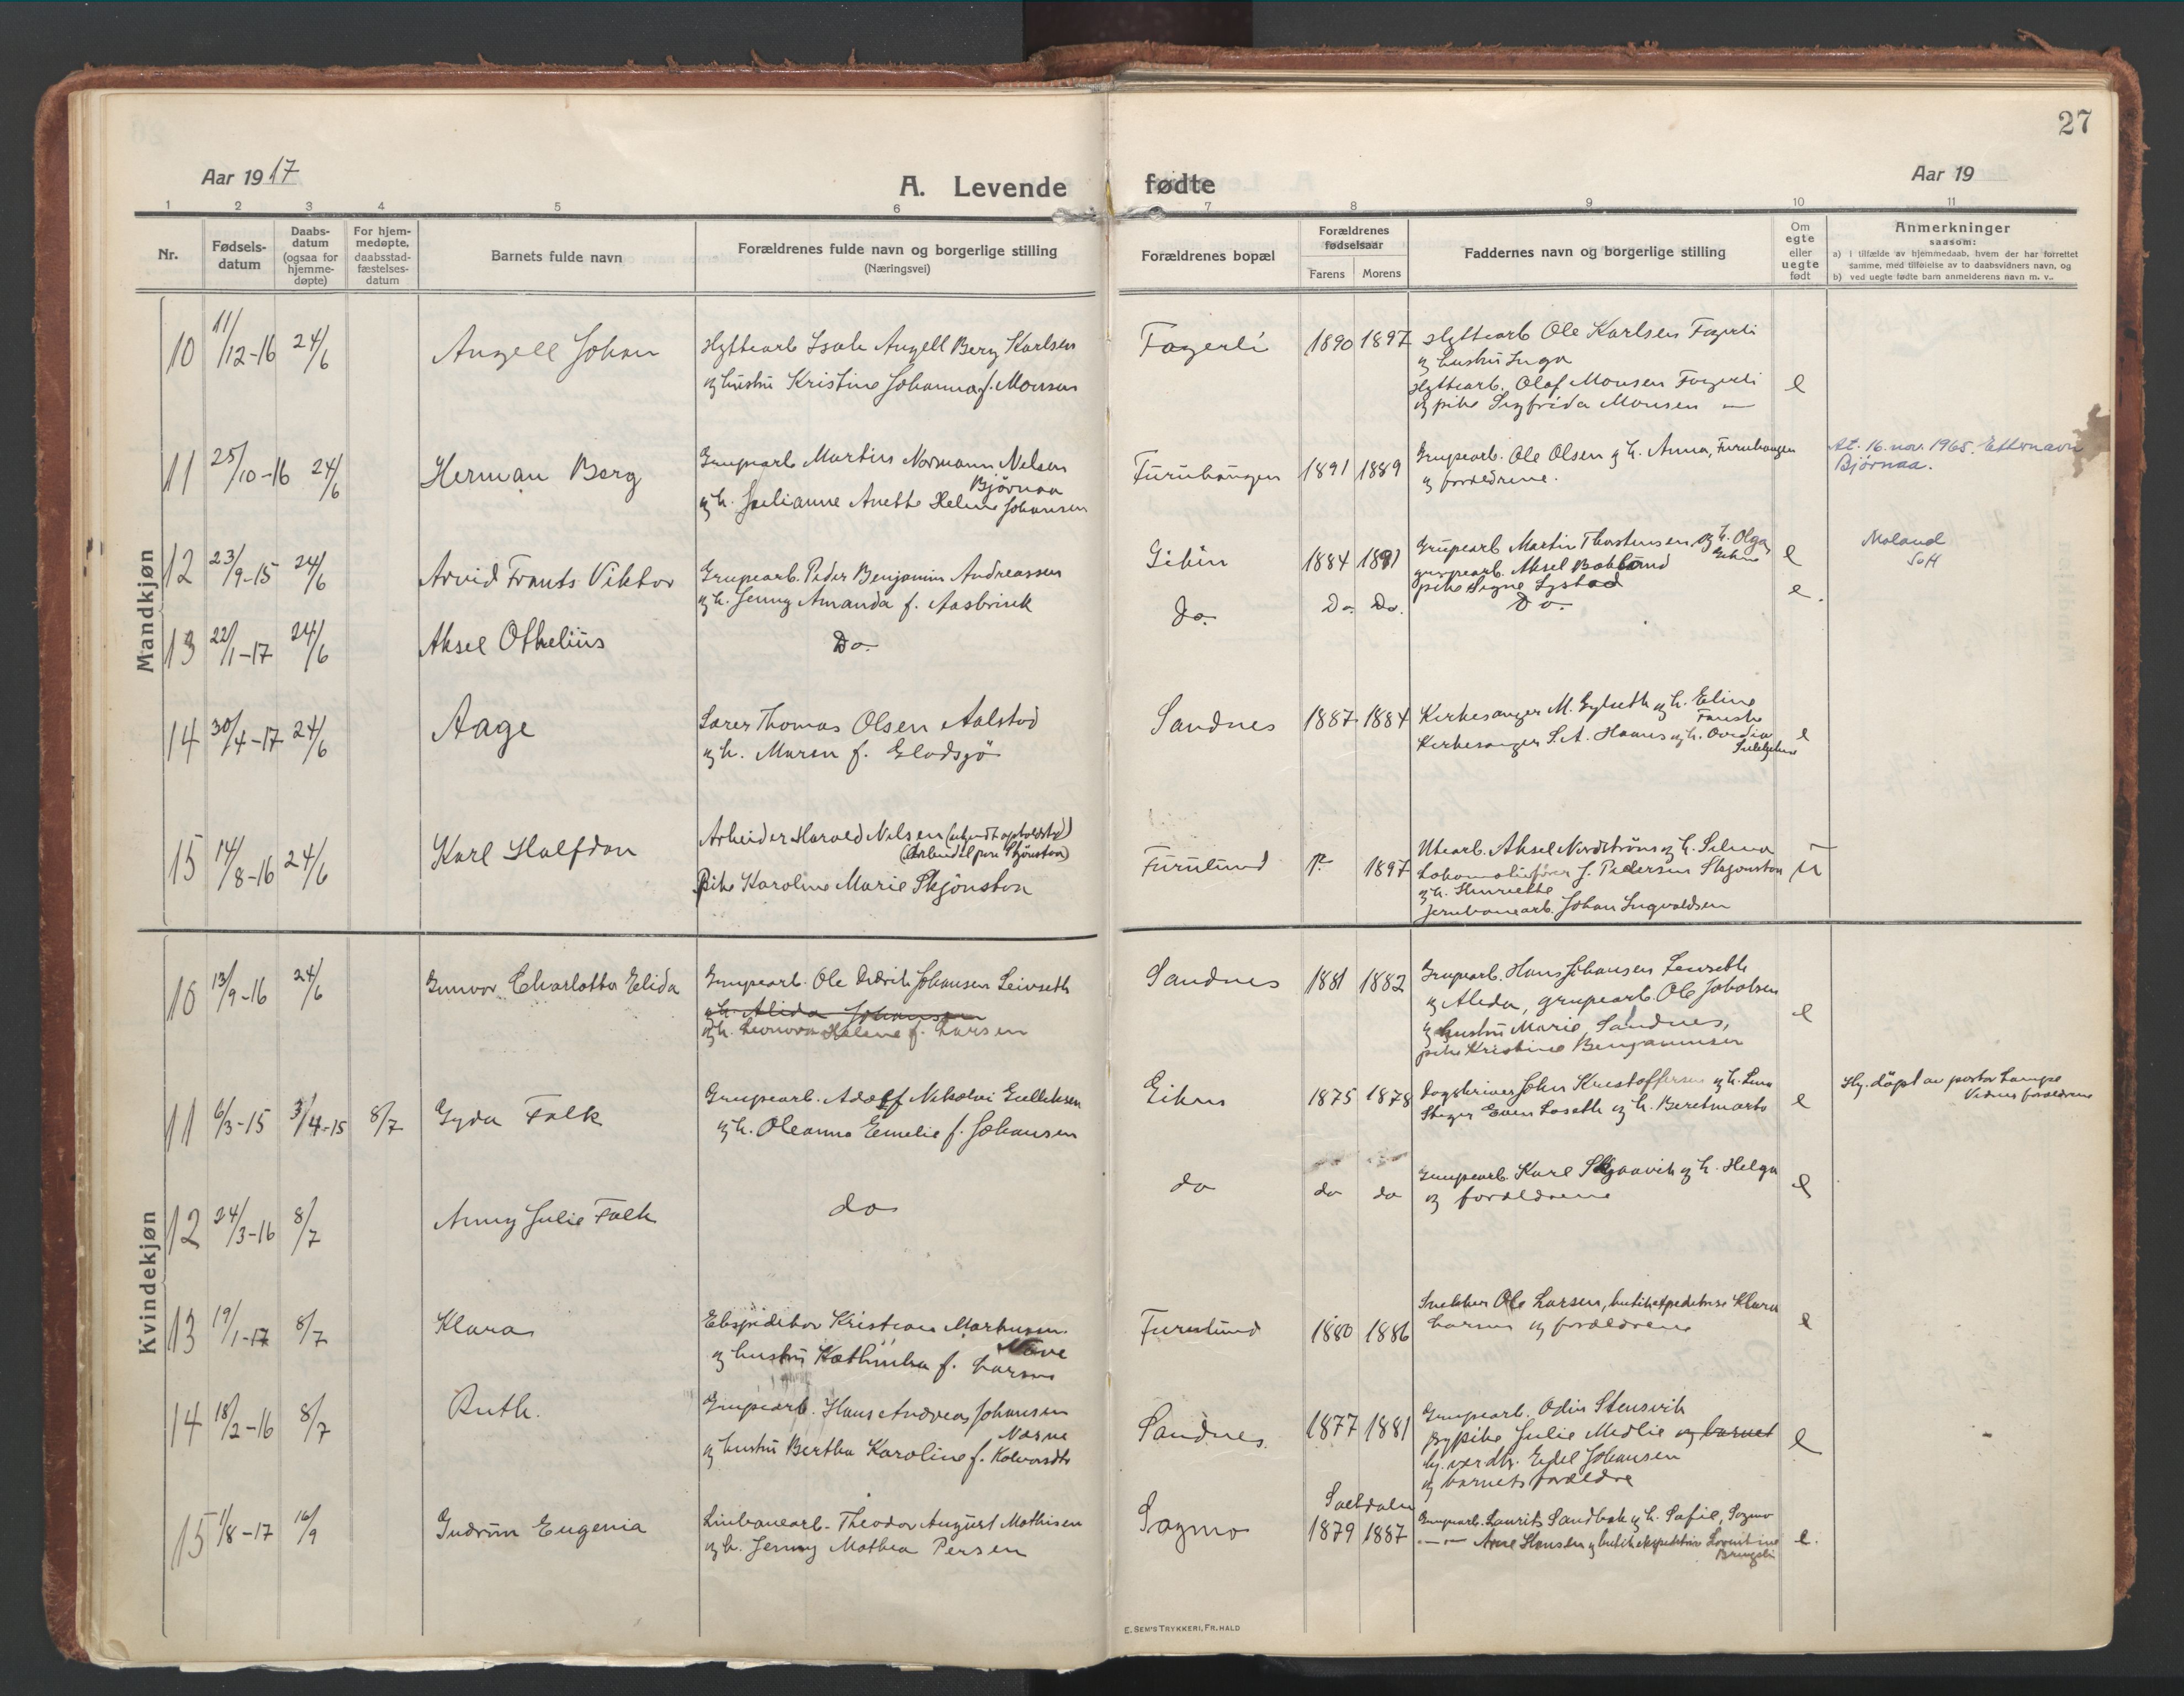 27
Aar 1917
A. Levende fødte
Aar 19
1 2 3 4 5 6 7 8 9 10 11
Nr.
Fødsels-
datum
Daabs-
datum
(ogsaa for
hjemme-
døpte)
For hjem-
medøpte,
daabsstad-
fæstelses-
datum
Barnets fulde navn
Forældrenes fulde navn og borgerlige stilling
(Næringsvei)
Forældrenes bopæl
Forældrenes
fødselsaar
Farens Morens
Faddernes navn og borgerlige stilling
Om
egte
eller
uegte
født
Anmerkninger
saasom:
a) i tilfælde av hjemmedaab, hvem der har forrettet
samme, med tilføielse av to daabsvidners navn, og
b) ved uegte fødte barn anmelderens navn m. v..
Mandkjøn
10 11/12-16 24/6 Angell Johan
Hyttearb Isak Angell Berg Karlsen
og hustru Kristine Johanna f. Monsen
Fagerli 1890 1897
Hyttearb Ole Karlsen Fagerli
og hustru Inga
Hyttearb. Olaf Monsen Fagerli
og pike Sigfrida Monsen —
e
11 25/10-16 24/6 Herman Berg
Grupearb Martin Normann Nelsen
Bjørnaa
og h. Julianne Anette Helene Johansen
Furuhaugen 1891 1889
Grupearb. Ole Olsen og h. Anna, Furuhaugen
og forældrene.
At. 16. nov. 1965. Etternavn
Bjørnaa.
12 23/9-15 24/6 Arvid Frants Viktor
Grupearb. Peder Benjamin Andreassen
og h. Jenny Amanda f. Aasbrink
Giken 1884 1891
Grupearb Martin Thorstensen og h. Olga,
Giken
grupearb. Aksel Bakland
pike Signe Lystad
e
Moland
SoH
13 22/1-17 24/6 Aksel Othelius
Do.
Do. Do. Do. Do. e.
14 30/4-17 24/6 Aage
Lærer Thomas Olsen Aalstad
og h. Maren f. Gladsjø
Sandnes 1887 1884
Kirkesanger M. Gylseth og h. Eline
Fauske
Kirkesanger S. A. Hanes og h. Ovedia
e
15 14/8-16 24/6 Karl Halfdan
Arbeider Harald Nelsen (ukjendt opholdsted)
Pike Karoline Marie Skjønstøa
Furulund ? 1897
Utearb. Aksel Nordstrøm og h. Selma
Lokomotivfører J. Pedersen Skjønstøa
og h. Henriette
Jernbanearb. Johan Ingvaldsen
u
Kvindekjøn
10 13/9-16 24/6 Gunvor Charlotta Elida
Grupearb. Ole Didrik Johansen Leivseth
og h. Alida Johansen
og h. Leonora Helene f. Larsen
Sandnes 1881 1882
Grupearb. Hans Johansen Leivseth
og Alida, grupearb. Ole Jakobsen
og hustru Marie, Sandnes,
pike Kristine Benjaminsen
e
11 6/3-15 3/4-15 8/7 Gyda Falk
Grupearb. Adolf Nikolai Gulliksen
og h. Oleanna Emelie f. Johansen
Giken 1875 1878
Dagskriver John Kristoffersen og h. Lina
Stiger Even Loseth og h. Beretmarta
e
Hj. døpt av pastor Lampe
Vidner forældrene
12 24/3-16 8/7 Anny Julie Falk
do
do do do
Grupearb. Karl Skjaavik og h. Helga
og forældrene
e
13 19/1-17 8/7 Klara
Ekspeditør Kristian Markussen
og hustru Kathinka f. Larsen
Furulund 1880 1886
Snekker Ole Larsen, butikekspeditrise Klara
Larsen og forældrene
e
14 18/2-16 8/7 Ruth.
Grupearb. Hans Andreas Johansen
og hustru Bertha Karoline f.
Sandnes. 1877 1881
Grupearb. Odin Stensvik
pike Julie Medlie og barnet
Edel Johansen
og barnets forældre
e
15 1/8-17 16/9 Gudrun Eugenia
Linbanearb. Theodor August Mathisen
og h. Jenny Mathea Persen
Sagmo
Saltdalen
1879 1887
Grupearb. Laurits Sandbak og h. Sofie, Sagmo
— " — Arne Hansen og butikekspeditrise
e.
E. SEM'S TRYKKERI, FR.HALD